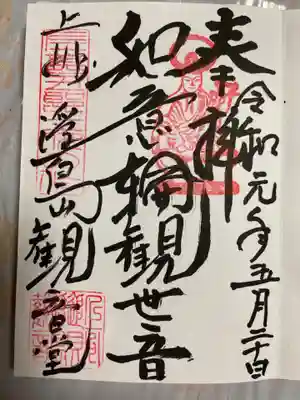 奉拝
令和元年五月二十日
如意輪観世音
上州
浮島観音堂